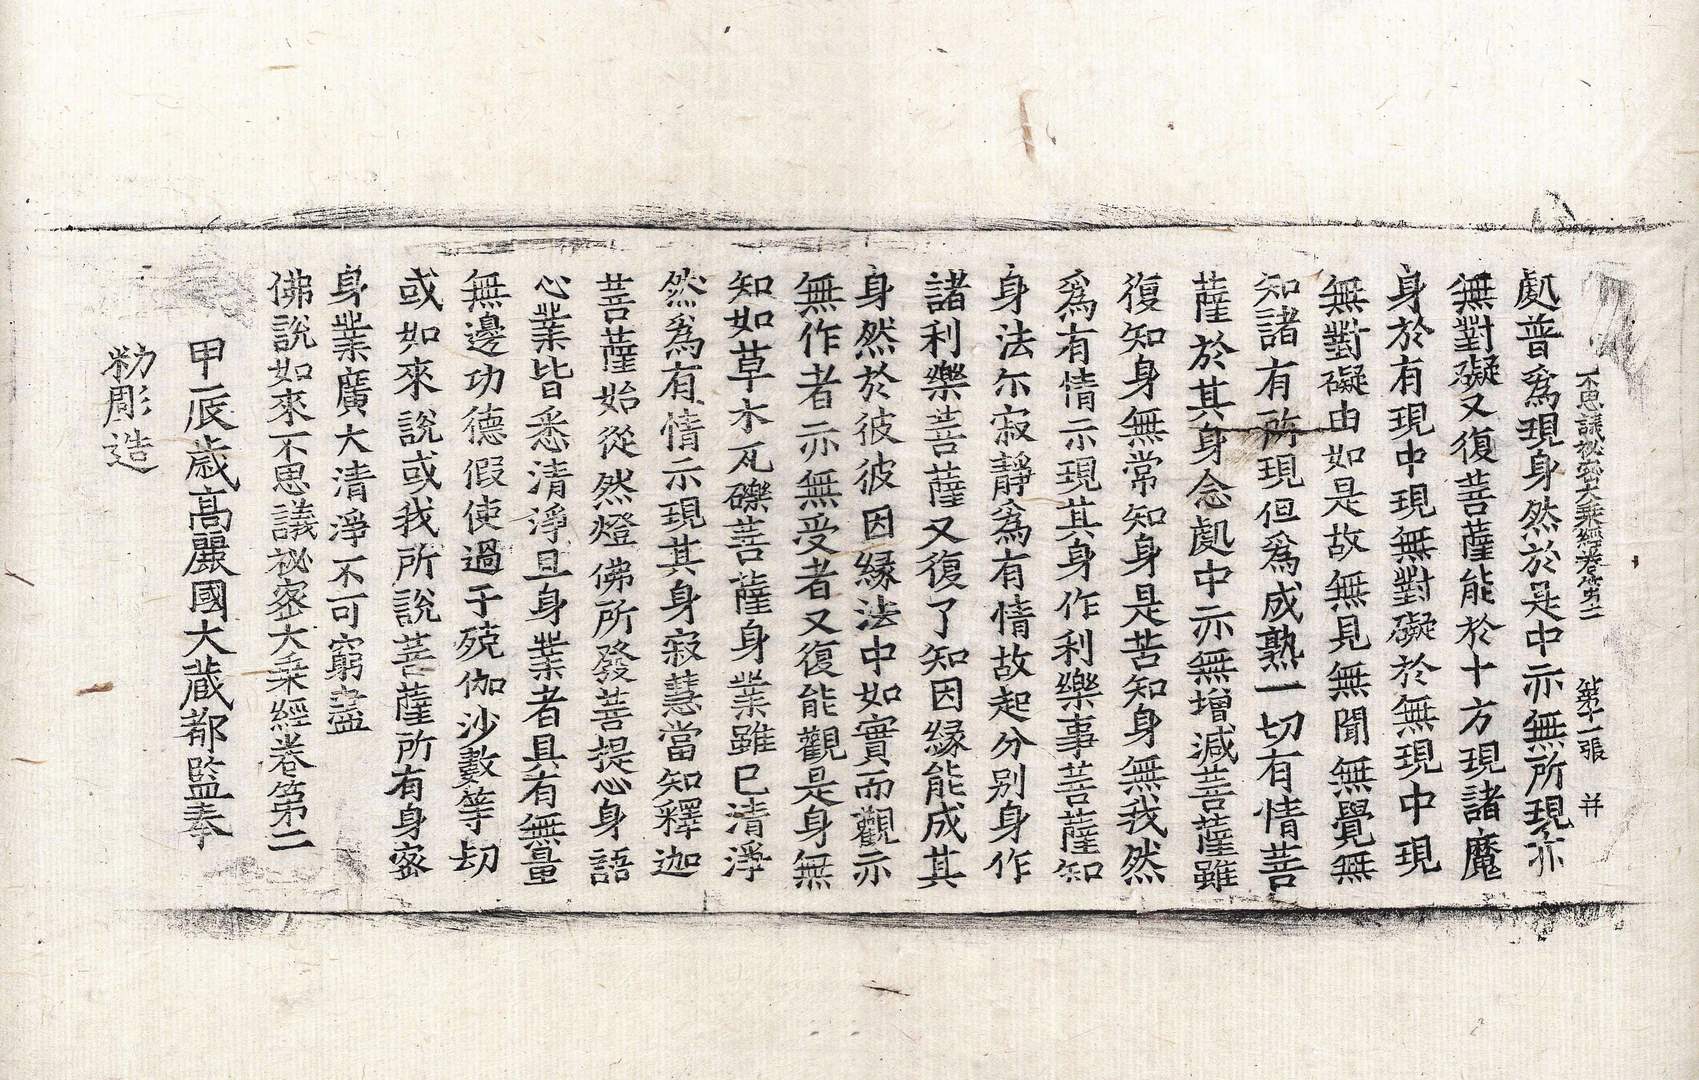 不思議祕密大乗經卷第二 第十一張 井
處普爲現身然於是中亦無所現亦
無對礙又復菩薩能於十方現諸魔
身於有現中現無對礙於無現中現
無對礙由如是故無見無聞無覺無
知諸有所現但爲成熟一切有情菩
薩於其身念處中亦無增減菩薩雖
復知身無常知身是苦知身無我然
爲有情示現其身作利樂事菩薩知
身法尒寂靜爲有情故起分别身作
諸利樂菩薩又復了知因緣能成其
身然於彼彼因緣法中如實而觀亦
無作者亦無受者又復能觀是身無
知如草木瓦礫菩薩身業雖已清淨
然爲有情示現其身寂慧當知釋迦
菩薩始從然燈佛所發菩提心身語
心業皆悉清淨且身業者具有無量
無邊功德假使過于殑伽沙數等劫
或如來說或我所說菩薩所有身密
身業廣大清淨不可窮盡
佛說如來不思議祕密大乗經卷第二
甲辰歲高麗國大藏都監奉
勑彫造